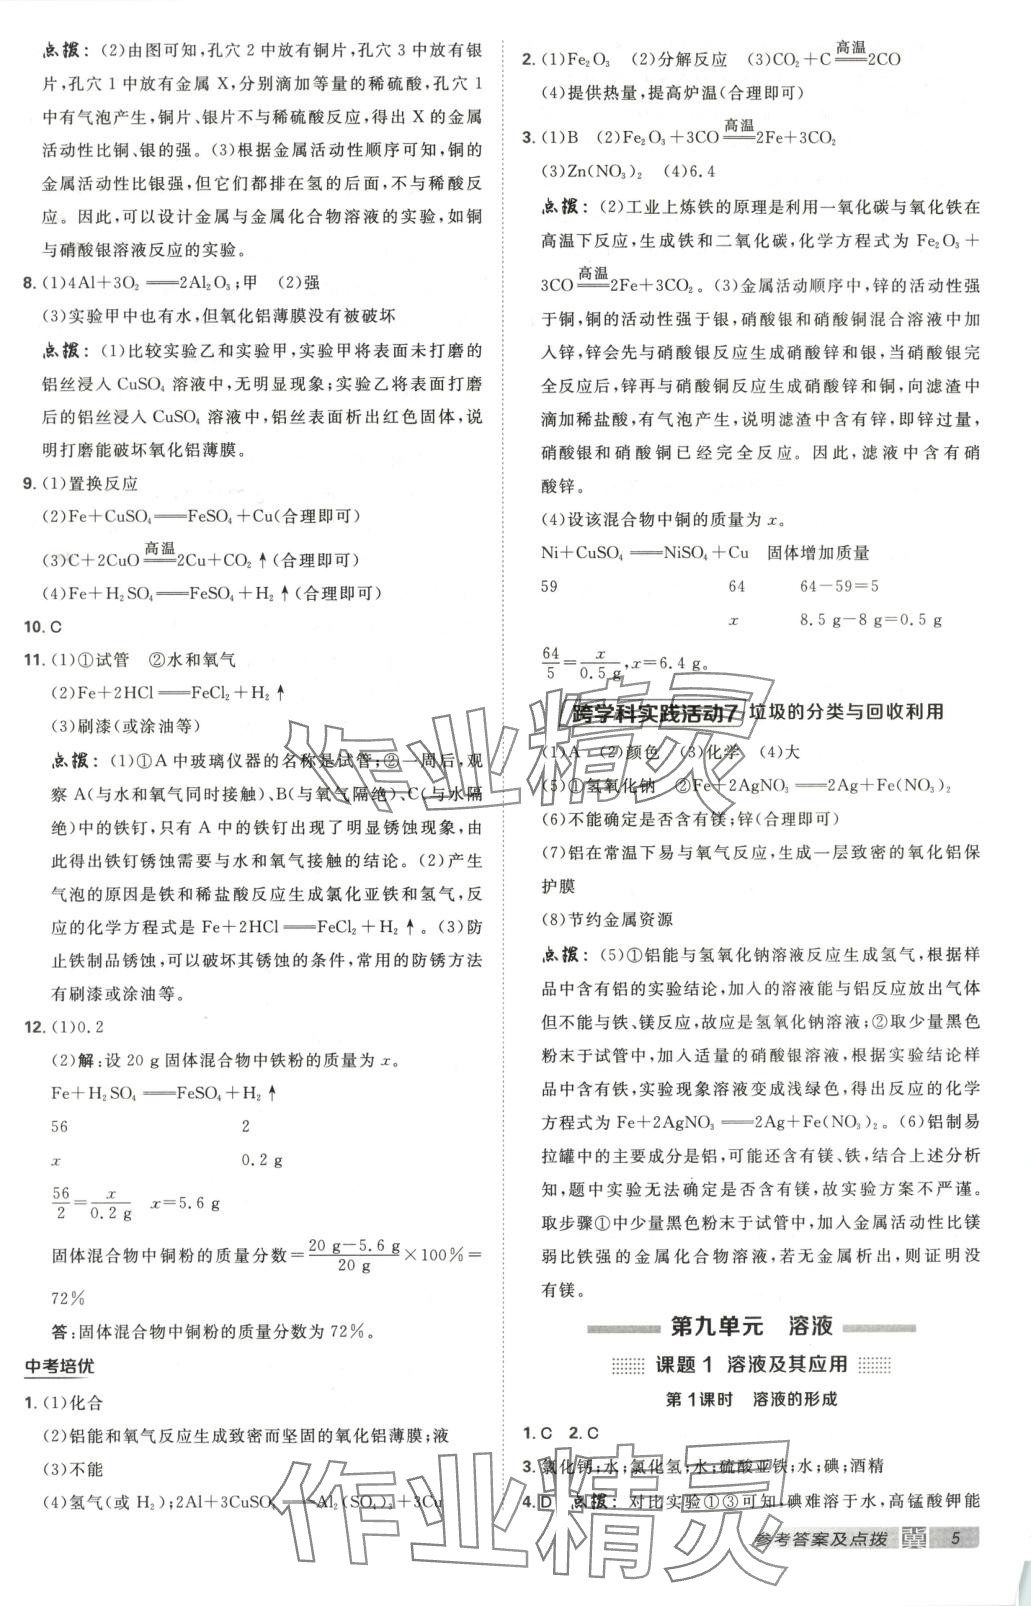 点拨：(2)由图可知,孔穴 2 中放有铜片,孔穴 3 中放有银
片,孔穴 1 中放有金属 X,分别滴加等量的稀硫酸,孔穴 1
中有气泡产生,铜片、银片不与稀硫酸反应,得出 X 的金属
活动性比铜、银的强。(3)根据金属活动性顺序可知,铜的
金属活动性比银强,但它们都排在氢的后面,不与稀酸反
应。因此,可以设计金属与金属化合物溶液的实验,如铜
与硝酸银溶液反应的实验。
8. (1)4Al+3O₂══2Al₂O₃;甲 (2)强
(3)实验甲中也有水,但氧化铝薄膜没有被破坏
点拨：(1)比较实验乙和实验甲,实验甲将表面未打磨的
铝丝浸入 CuSO₄ 溶液中,无明显现象;实验乙将表面打磨
后的铝丝浸入 CuSO₄ 溶液中,铝丝表面析出红色固体,说
明打磨能破坏氧化铝薄膜。
9. (1)置换反应
(2)Fe+CuSO₄══FeSO₄+Cu(合理即可)
(3)C+2CuO═高温═2Cu+CO₂↑(合理即可)
(4)Fe+H₂SO₄══FeSO₄+H₂↑(合理即可)
10. C
11. (1)①试管 ②水和氧气
(2)Fe+2HCl══FeCl₂+H₂↑
(3)刷漆(或涂油等)
点拨：(1)①A 中玻璃仪器的名称是试管;②一周后,观
察 A(与水和氧气同时接触)、B(与氧气隔绝)、C(与水隔
绝)中的铁钉,只有 A 中的铁钉出现了明显锈蚀现象,由
此得出铁钉锈蚀需要与水和氧气接触的结论。(2)产生
气泡的原因是铁和稀盐酸反应生成氯化亚铁和氢气,反
应的化学方程式是 Fe+2HCl══FeCl₂+H₂↑。(3)防
止铁制品锈蚀,可以破坏其锈蚀的条件,常用的防锈方法
有刷漆或涂油等。
12. (1)0.2
(2)解:设 20 g 固体混合物中铁粉的质量为 x。
Fe+H₂SO₄══FeSO₄+H₂↑
56 2
x 0.2 g
56/2=x/0.2 g x=5.6 g
固体混合物中铜粉的质量分数=(20 g−5.6 g)/20 g×100%=
72%
答:固体混合物中铜粉的质量分数为 72%。
中考培优
1. (1)化合
(2)铝能和氧气反应生成致密而坚固的氧化铝薄膜;液
(3)不能
(4)氢气(或 H₂);2Al+3CuSO₄══Al₂(SO₄)₃+3Cu
2. (1)Fe₂O₃ (2)分解反应 (3)CO₂+C═高温═2CO
(4)提供热量,提高炉温(合理即可)
3. (1)B (2)Fe₂O₃+3CO═高温═2Fe+3CO₂
(3)Zn(NO₃)₂ (4)6.4
点拨：(2)工业上炼铁的原理是利用一氧化碳与氧化铁在
高温下反应,生成铁和二氧化碳,化学方程式为 Fe₂O₃+
3CO═高温═2Fe+3CO₂。(3)金属活动顺序中,锌的活动性强
于铜,铜的活动性强于银,硝酸银和硝酸铜混合溶液中加
入锌,锌会先与硝酸银反应生成硝酸锌和银,当硝酸银完
全反应后,锌再与硝酸铜反应生成硝酸锌和铜,向滤渣中
滴加稀盐酸,有气泡产生,说明滤渣中含有锌,即锌过量,
硝酸银和硝酸铜已经完全反应。因此,滤液中含有硝
酸锌。
(4)设该混合物中铜的质量为 x。
Ni+CuSO₄══NiSO₄+Cu 固体增加质量
59 64 64−59=5
x 8.5 g−8 g=0.5 g
64/5=x/0.5 g,x=6.4 g。
跨学科实践活动7 垃圾的分类与回收利用
(1)A (2)颜色 (3)化学 (4)大
(5)①氢氧化钠 ②Fe+2AgNO₃══2Ag+Fe(NO₃)₂
(6)不能确定是否含有镁;锌(合理即可)
(7)铝在常温下易与氧气反应,生成一层致密的氧化铝保
护膜
(8)节约金属资源
点拨：(5)①铝能与氢氧化钠溶液反应生成氢气,根据样
品中含有铝的实验结论,加入的溶液能与铝反应放出气体
但不能与铁、镁反应,故应是氢氧化钠溶液;②取少量黑色
粉末于试管中,加入适量的硝酸银溶液,根据实验结论样
品中含有铁,实验现象溶液变成浅绿色,得出反应的化学
方程式为 Fe+2AgNO₃══2Ag+Fe(NO₃)₂。(6)铝制易
拉罐中的主要成分是铝,可能还含有镁、铁,结合上述分析
知,题中实验无法确定是否含有镁,故实验方案不严谨。
取步骤①中少量黑色粉末于试管中,加入金属活动性比镁
弱比铁强的金属化合物溶液,若无金属析出,则证明没
有镁。
第九单元 溶液
课题 1 溶液及其应用
第 1 课时 溶液的形成
1. C 2. C
3. 氯化钙;水;氯化氢;水;硫酸亚铁;水;碘;酒精
4. D 点拨：对比实验①③可知,碘难溶于水,高锰酸钾能
参考答案及点拨 冀 5
作业精灵
作业精灵